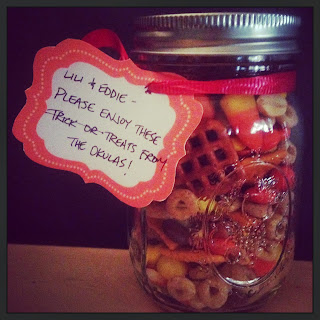 LILI & EDDIE -
PLEASE ENJOY THESE
TRICK-OR-TREATS FROM
THE OKULAS!